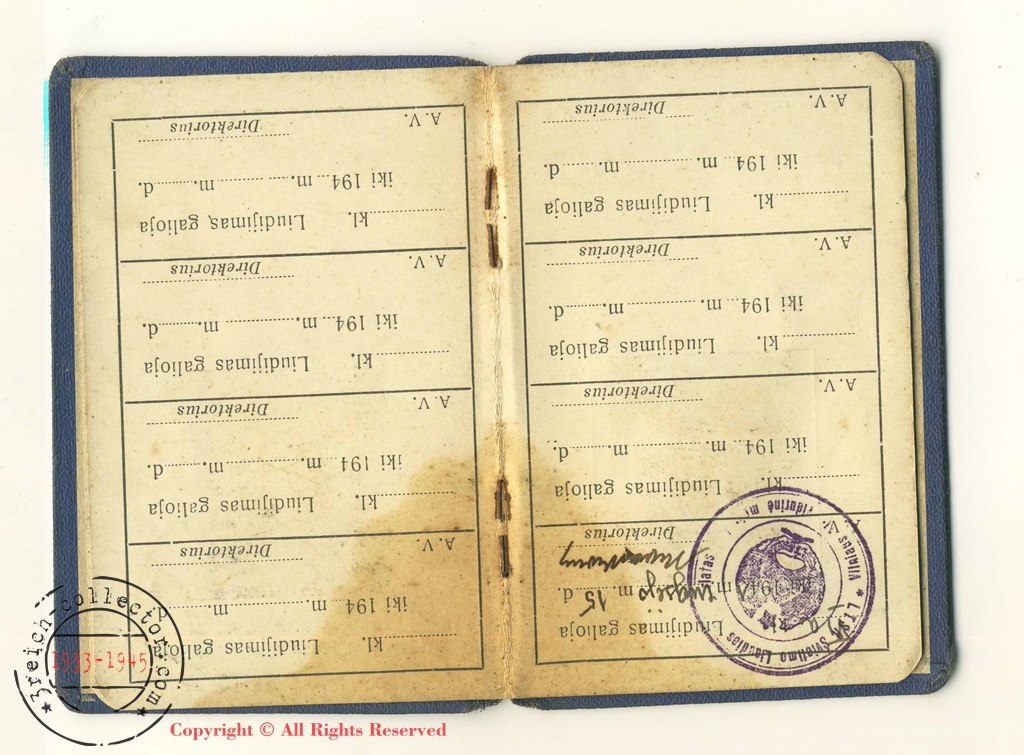 kl. Liudijimas galioja
iki 1941 m. rugsėjo m. 15 d.
A. V. Direktorius
LTSR Švietimo Liaudies
Vilniaus
kl. Liudijimas galioja
iki 194 m. m. d.
A. V. Direktorius
kl. Liudijimas galioja
iki 194 m. m. d.
A. V. Direktorius
kl. Liudijimas galioja
iki 194 m. m. d.
A. V. Direktorius
kl. Liudijimas galioja
iki 194 m. m. d.
A. V. Direktorius
kl. Liudijimas galioja
iki 194 m. m. d.
A. V. Direktorius
kl. Liudijimas galioja
iki 194 m. m. d.
A. V. Direktorius
kl. Liudijimas galioja
iki 194 m. m. d.
A. V. Direktorius
3reich-collector.com
1933-1945
Copyright © All Rights Reserved